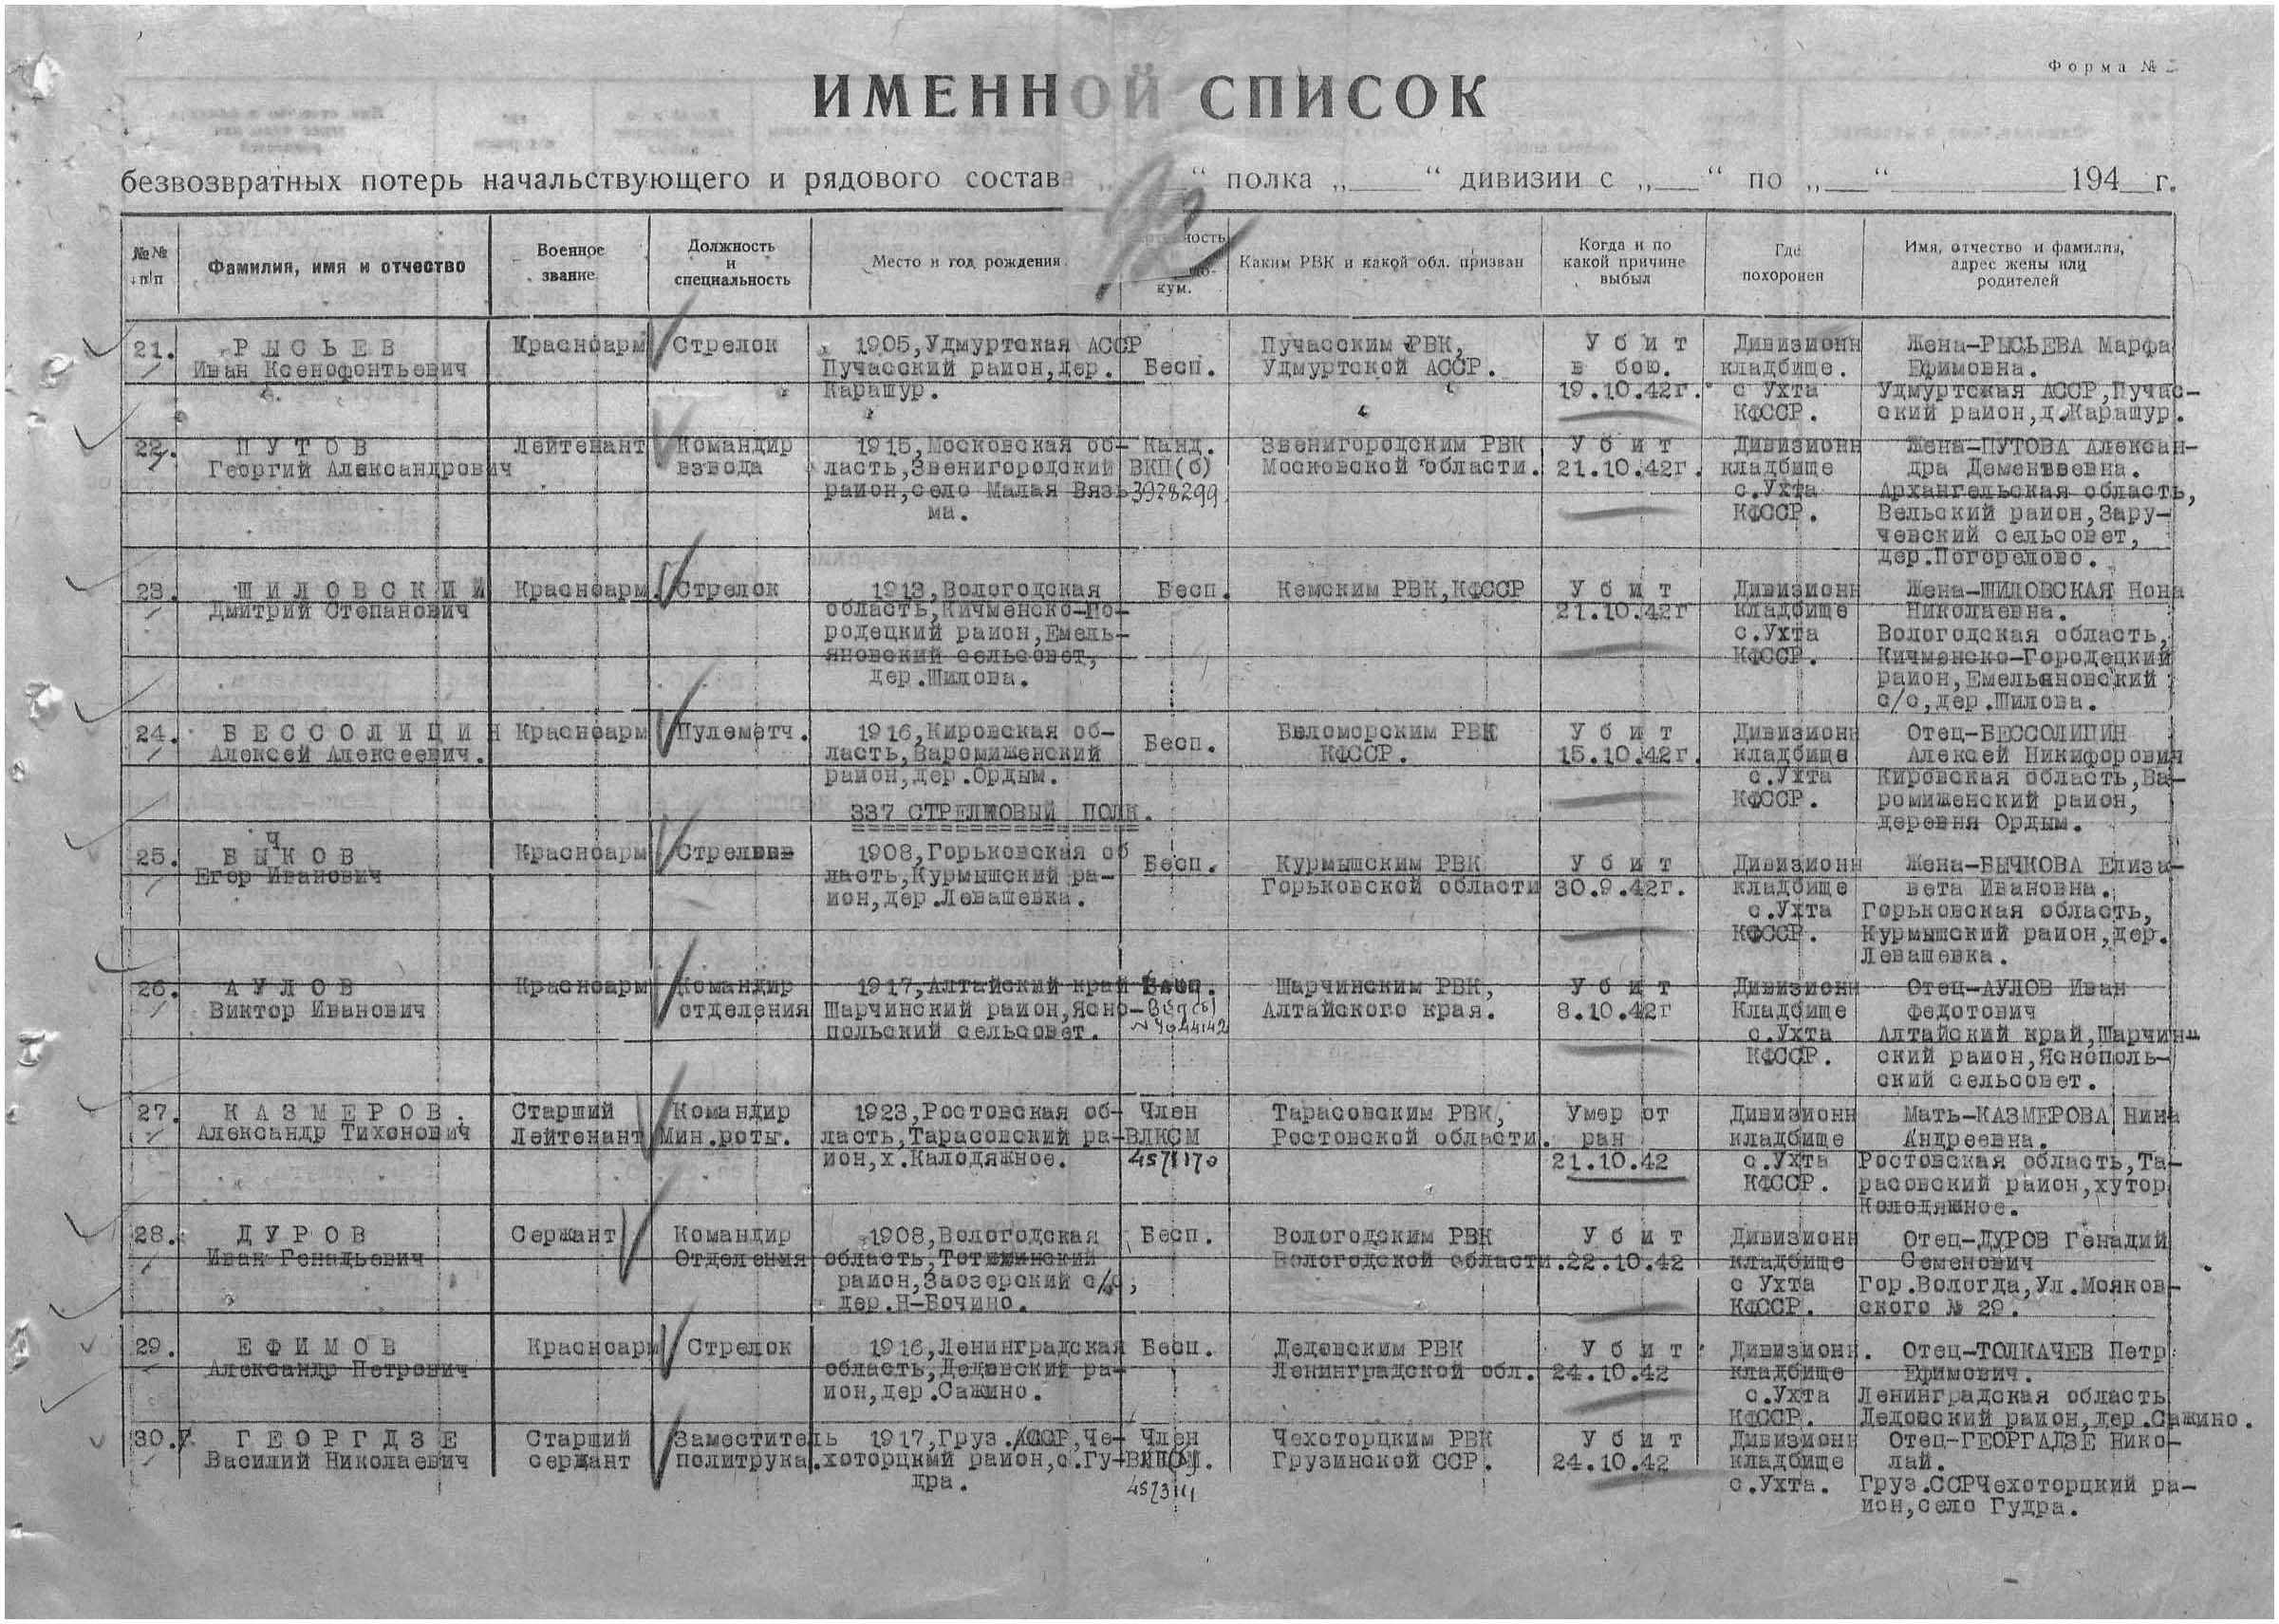 Форма №
ИМЕННОЙ СПИСОК
безвозвратных потерь начальствующего и рядового состава „ “ полка „ “ дивизии с „ “ по „ “ 194 г.
№№ п/п
Фамилия, имя и отчество
Военное звание
Должность и специальность
Место и год рождения
кум.
Каким РВК и какой обл. призван
Когда и по какой причине выбыл
Где похоронен
Имя, отчество и фамилия, адрес жены или родителей
21. РЫСЬЕВ Красноарм Стрелок 1905,Удмуртская АССР Пучасским РВК, Убит Дивизионн Жена-РЫСЬЕВА Марфа
Иван Ксенофонтьевич Пучасский район,дер. Бесп. Удмуртской АССР. в бою. кладбище. Ефимовна.
Карашур. 19.10.42г. с Ухта Удмуртская АССР,Пучас-
КФССР. ский район,д.Карашур.
22. ПУТОВ Лейтенант Командир 1915,Московская об- Канд. Звенигородским РВК Убит Дивизионн Жена-ПУТОВА Алексан-
Георгий Александрович взвода ласть,Звенигородский ВКП(б) Московской области. 21.10.42г. кладбище дра Дементьевна.
район,село Малая Вязь 3928299 с.Ухта Архангельская область,
ма. КФССР. Вельский район,Зару-
чевский сельсовет,
дер.Погорелово.
23. ШИЛОВСКИЙ Красноарм. Стрелок 1913,Вологодская Бесп. Кемским РВК,КФССР Убит Дивизионн Жена-ШИЛОВСКАЯ Нона
Дмитрий Степанович область,Кичменско-Го- 21.10.42г кладбище Николаевна.
родецкий район,Емель- с.Ухта Вологодская область,
яновский сельсовет, КФССР. Кичменско-Городецкий
дер.Шилова. район,Емельяновский
с/с,дер.Шилова.
24. БЕССОЛИЦИН Красноарм Пулеметч. 1916,Кировская об- Бесп. Беломорским РВК Убит Дивизионн Отец-БЕССОЛИЦИН
Алексей Алексеевич. ласть,Варомиженский КФССР. 15.10.42г. кладбище Алексей Никифорович
район,дер.Ордым. с.Ухта Кировская область,Ва-
КФССР. ромиженский район,
337 СТРЕЛКОВЫЙ ПОЛК.
деревня Ордым.
Ч
25. БЫКОВ Красноарм Стрелок 1908,Горьковская об Бесп. Курмышским РВК Убит Дивизионн Жена-БЫЧКОВА Елиза-
Егор Иванович ласть,Курмышский ра- Горьковской области 30.9.42г. кладбище вета Ивановна.
ион,дер.Левашевка. с.Ухта Горьковская область,
КФССР. Курмышский район,дер.
Левашевка.
26. АУЛОВ Красноарм Командир 1917,Алтайский край Шарчинским РВК, Убит Дивизионн Отец-АУЛОВ Иван
Виктор Иванович отделения Шарчинский район,Ясно- Алтайского края. 8.10.42г Кладбище Федотович
польский сельсовет. с.Ухта Алтайский край,Шарчин-
КФССР. ский район,Яснополь-
ский сельсовет.
27. КАЗМЕРОВ. Старший Командир 1923,Ростовская об- Член Тарасовским РВК, Умер от Дивизионн Мать-КАЗМЕРОВА Нина
Александр Тихонович Лейтенант Мин.роты. ласть,Тарасовский ра- ВЛКСМ Ростовской области. ран кладбище Андреевна.
ион,х.Калодяжное. 4571170 21.10.42 с.Ухта Ростовская область,Та-
КФССР. расовский район,хутор
Колодяжное.
28. ДУРОВ Сержант Командир 1908,Вологодская Бесп. Вологодским РВК Убит Дивизионн Отец-ДУРОВ Генадий
Иван Генадьевич Отделения область,Тотминский Вологодской области. 22.10.42 кладбище Семенович
район,Заозерский с/с, с Ухта Гор.Вологда,Ул.Мояков-
дер.Н-Бочино. КФССР. ского № 29.
29. ЕФИМОВ Красноарм Стрелок 1916,Ленинградская Бесп. Дедовским РВК Убит Дивизионн. Отец-ТОЛКАЧЕВ Петр
Александр Петрович область,Дедовский ра- Ленинградской обл. 24.10.42 кладбище Ефимович.
ион,дер.Сажино. с.Ухта Ленинградская область
КФССР. Дедовский район,дер.Сажино.
30. ГЕОРГДЗЕ Старший Заместитель 1917,Груз.ССР,Че- Член Чехоторцким РВК Убит Дивизионн Отец-ГЕОРГАДЗЕ Нико-
Василий Николаевич сержант политрука. хоторцкмй район,с.Гу- Грузинской ССР. 24.10.42 кладбище лай.
дра. с.Ухта. Груз.ССРЧехоторцкий ра-
ион,село Гудра.